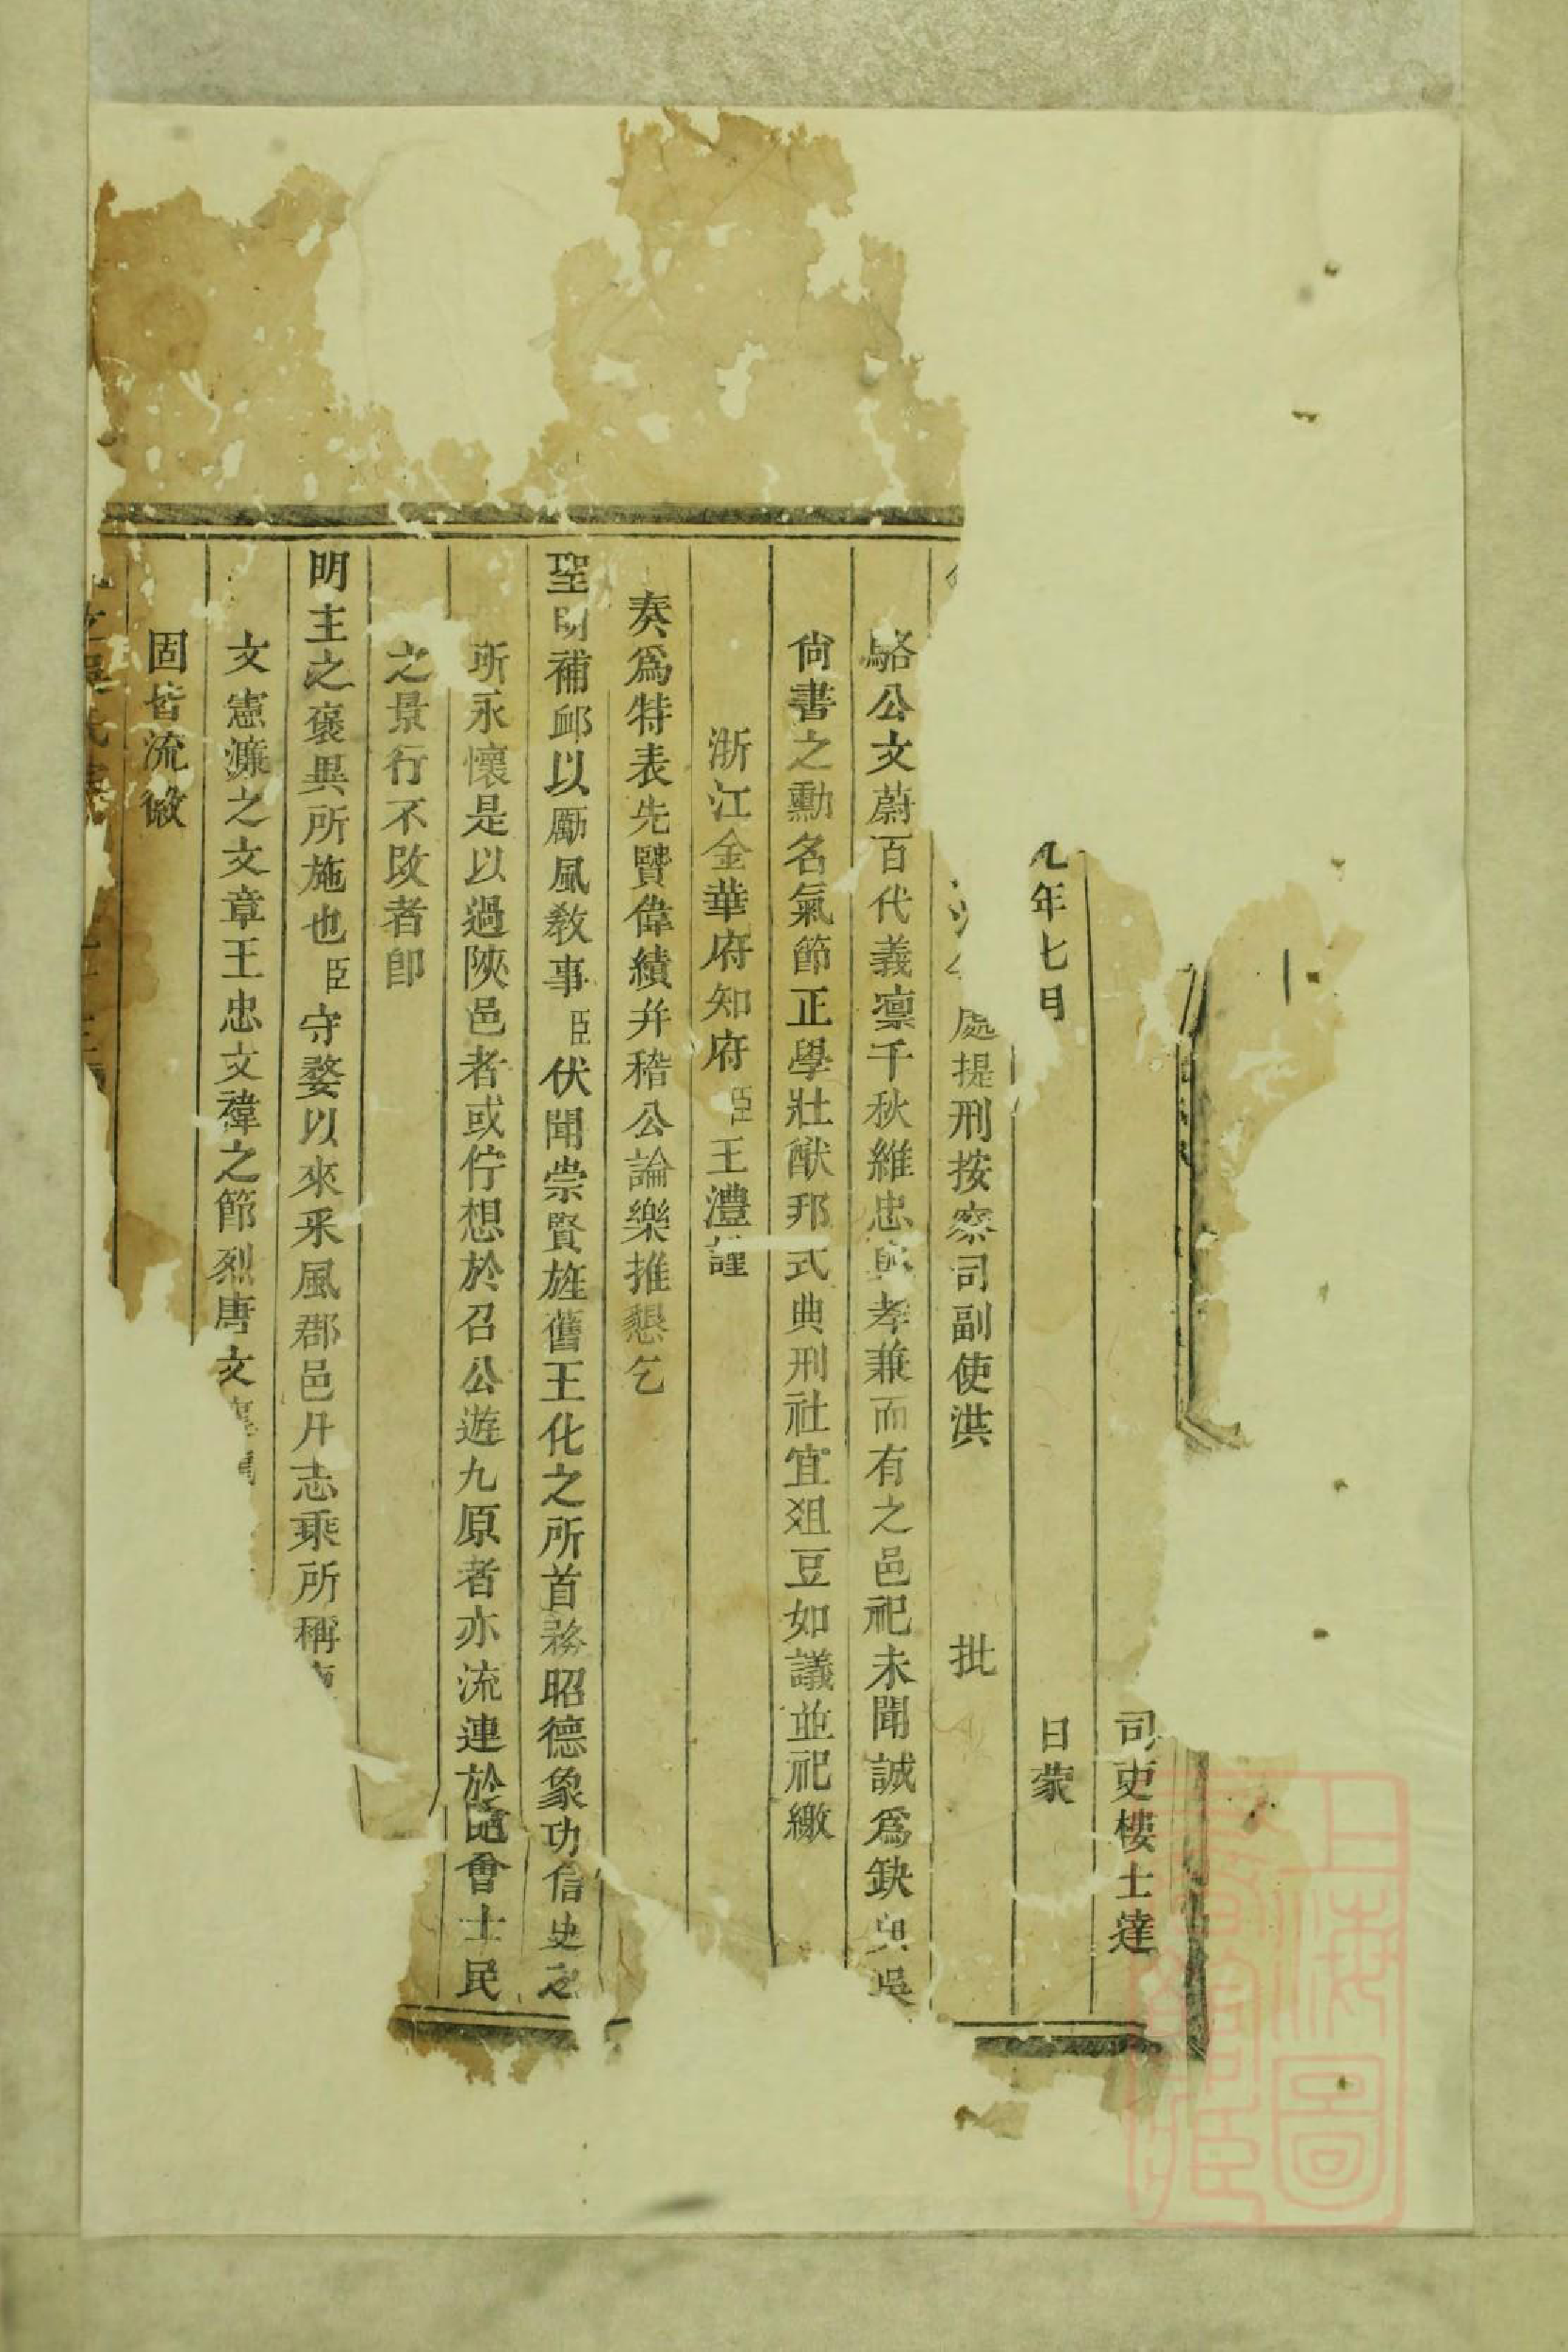 司吏樓士達
九年七月 日蒙
處提刑按察司副使洪 批
駱公文蔚百代義凜千秋維忠與孝兼而有之邑祀未聞誠爲缺典吳
尚書之勳名氣節正學壯猷邦式典刑社宜俎豆如議並祀繳
浙江金華府知府臣王澧謹
奏爲特表先賢偉績并稽公論樂推懇乞
聖明補䘏以勵風教事臣伏聞崇賢旌舊王化之所首務昭德象功信史之
所永懷是以過陝邑者或佇想於召公遊九原者亦流連於隨會士民
之景行不改者即
明主之褒異所施也臣守婺以來采風郡邑廾志乘所稱
文憲濂之文章王忠文褘之節烈唐文
固皆流徽
上海圖書館藏